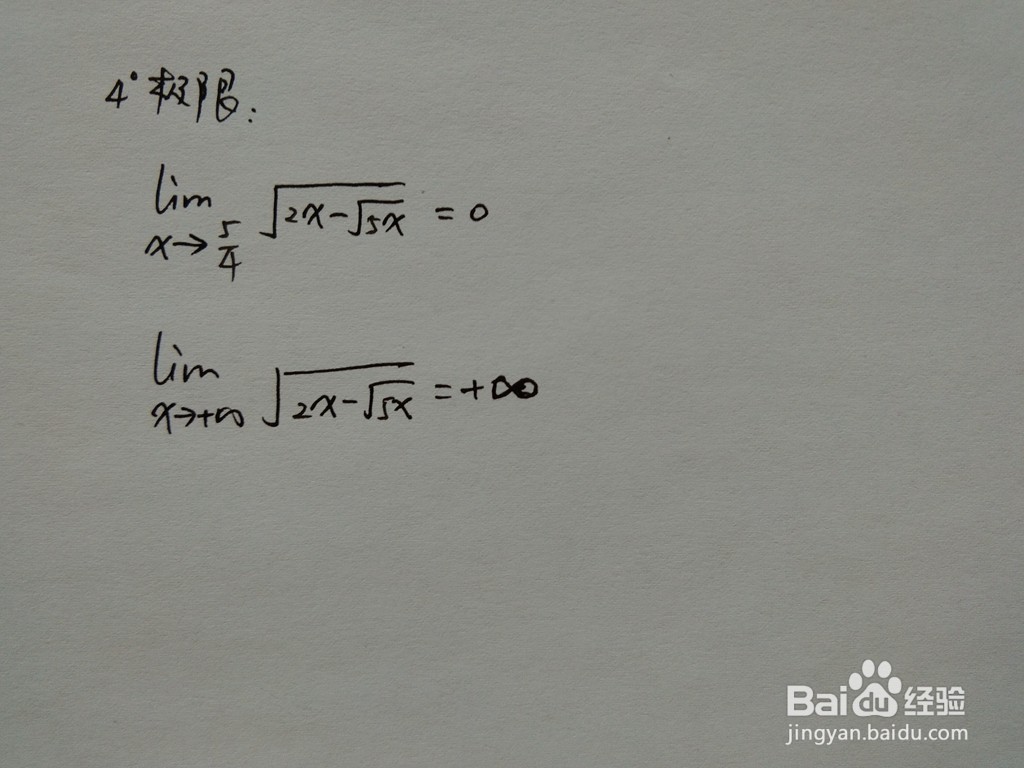 4° 极限:
lim x→5/4 √(2x-√(5x)) = 0
lim x→+∞ √(2x-√(5x)) = +∞
Baidu经验
jingyan.baidu.com